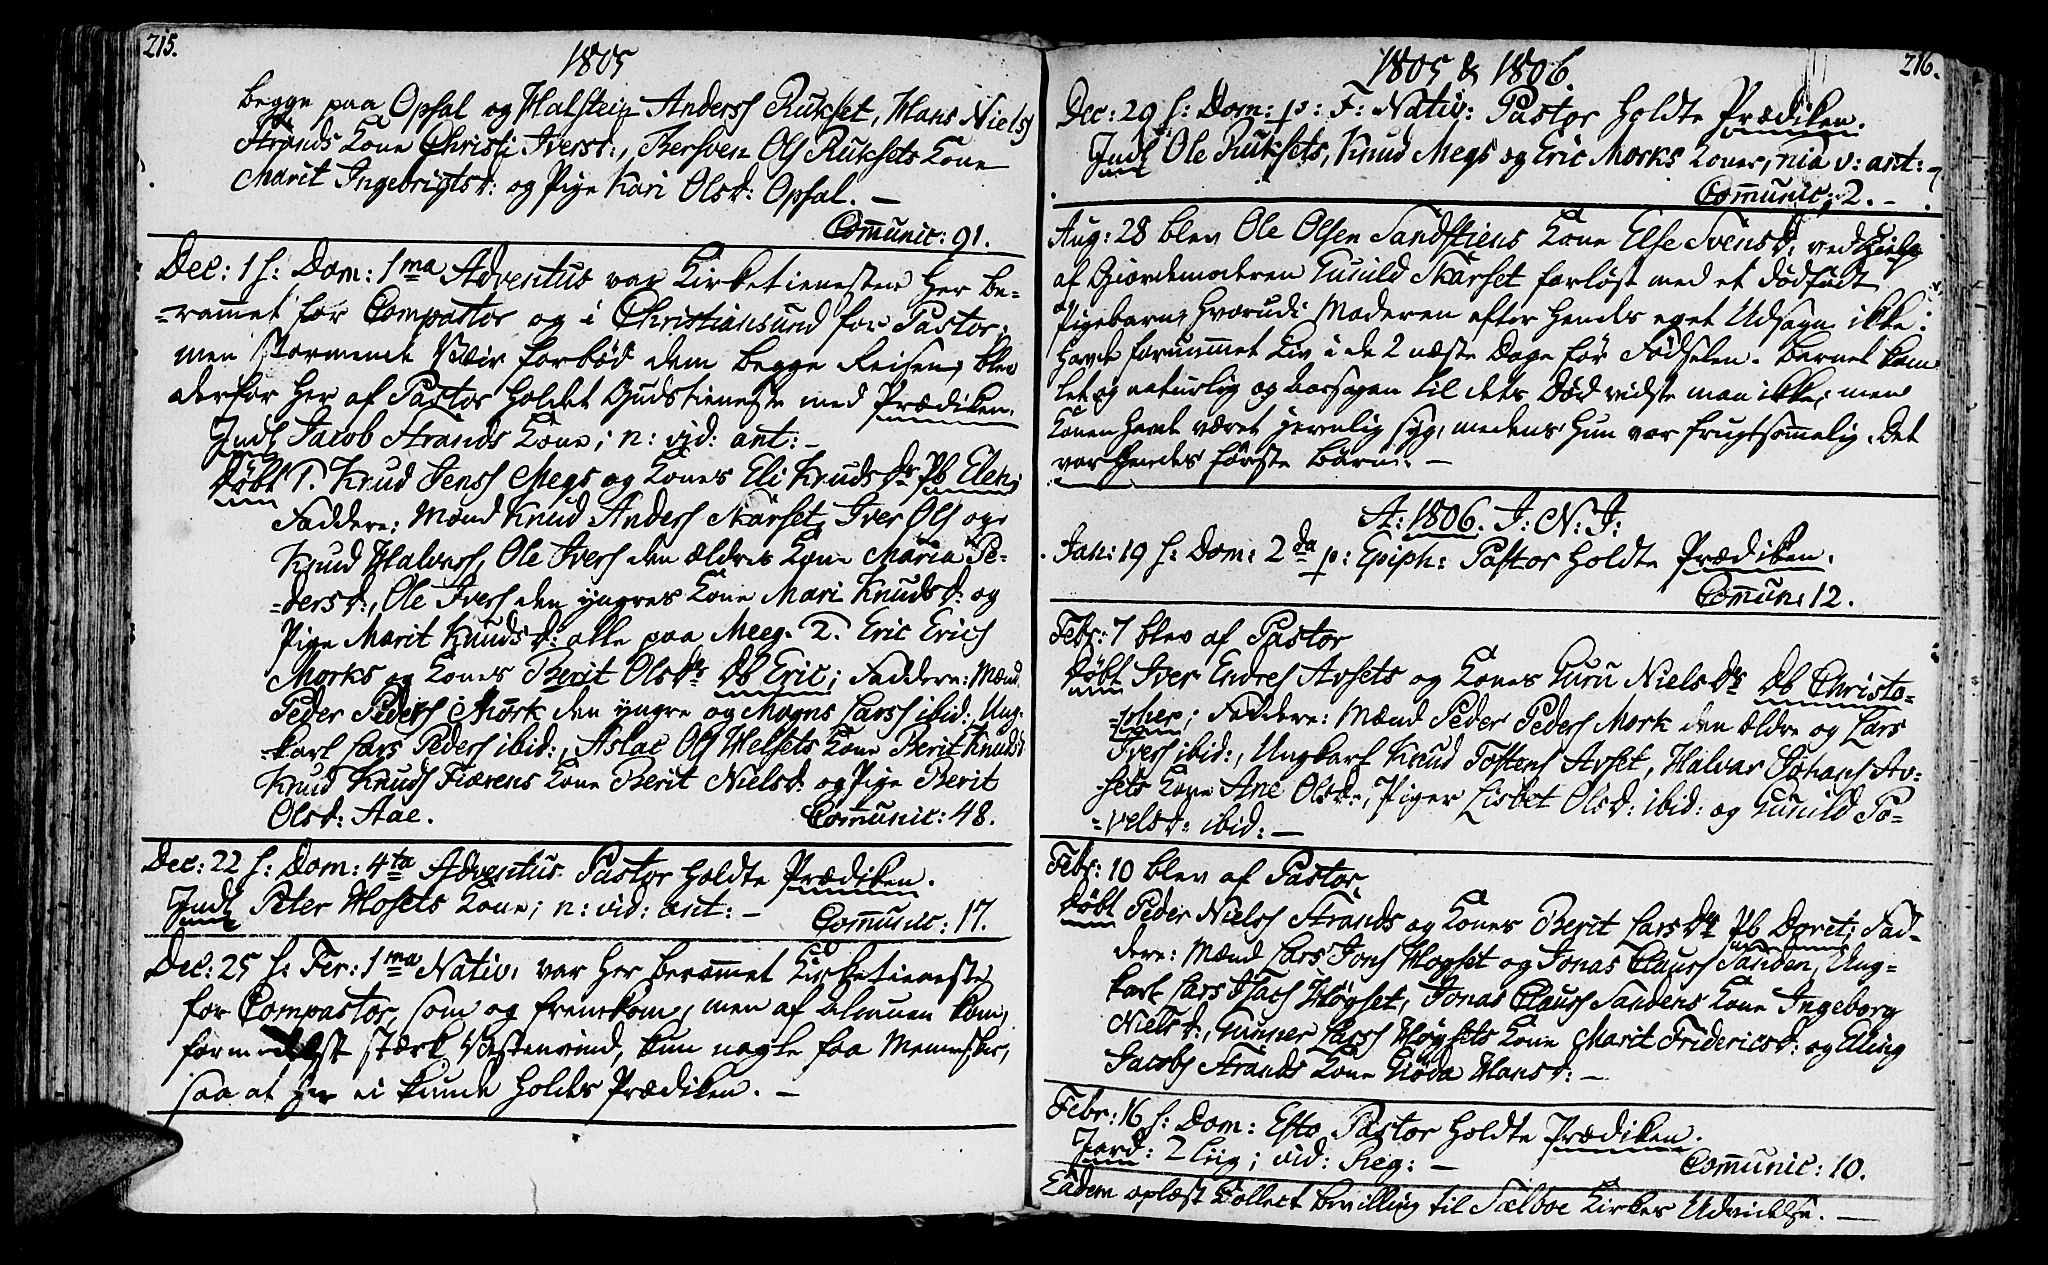 215.
1805
begge paa Opsal og Halstein Anders Rukset, Hans Niels
Strands Kone Christi Iversd:, Bersven Ols Ruksets Kone
Marit Ingebrigtsd: og Pige Kari Olsd: Opsal. –
Com̄unic: 91.
Dec: 1 h: Dom: 1ma Adventus var Kirketienesten her be-
-rammet for Compastor og i Christiansund for Pastor;
men stormende Veir forbød dem begge Reisen, blev
derfor her af Pastor holdet Gudstieneste med Prædiken.
Indl Jacob Strands Kone; n: vid: ant: –
Døbt 1. Knud Jens Megs og Kones Eli Knudsdr Pb Elen;
Faddere: Mænd Knud Anders Skarset, Iver Ols og
Knud Halvors, Ole Ivers den ældres Kone Maria Pe-
-dersd:, Ole Ivers den yngres Kone Mari Knudsd: og
Pige Marit Knudsd: alle paa Meeg. 2. Eric Erics
Morks og Kones Berit Olsdr Db Eric; Faddere: Mænd
Peder Peders Mørk den yngre og Mogns Lars ibid:, Ung-
-karl Lars Peders ibid:, Aslac Ols Helsets Kone Berit Knudsd
Knud Knuds Fiærens Kone Berit Nielsd: og Pige Berit
Olsd: Aae. Com̄unic: 48.
Dec: 22 h: Dom: 4ta Adventus Pastor holdte Prædiken.
Indl Peter Hosets Kone; n: vid: ant: – Com̄unic: 17.
Dec: 25 h: Fer: 1ma Nativ: var her beram̄et Kirketieneste
for Compastor, som og fremkom, men af Almuen kom,
formedelst stærk Vestenvind, kun nogle faa Mennesker,
saa at her ei kunde holdes Prædiken. –
216.
1805 & 1806
Dec: 29 h: Dom: p: F: Nativ: Pastor holdte Prædiken.
Indl Ole Ruksets, Knud Megs og Eric Morks Koner, nia v: ant: –
Com̄unic: 2. –
Aug: 28 blev Ole Olsen Sandstiens Kone Else Svensd, ved
af Giordemoderen Gunild Skarset forløst med et dødfødt
Pigebarn, hvorudi Moderen efter hendes eget Udsagn ikke
havde fornummet Liv i de 2 næste Dage før Fødselen. Barnet kom
let og naturlig og Aarsagen til dets Død vidste man ikke; men
Konen havde været jevnlig syg, medens hun var frugtsom̄elig. Det
var hendes første Barn. –
A: 1806. I: N: J:
Jan: 19 h: Dom: 2da p: Epiph: Pastor holdte Prædiken.
Com̄un: 12.
Febr: 7 blev af Pastor
Døbt Iver Endres Avsets og Kones Guru Nielsdr Db Christo-
-pher; Faddere: Mænd Peder Peders Mork den ældre og Lars
Ivers ibid:, Ungkarl Knud Tostens Avset, Halvor Johans Av-
-sets Kone Ane Olsd:, Piger Lisbet Olsd: ibid: og Gunild Po-
-velsd: ibid: –
Febr: 10 blev af Pastor
Døbt Peder Niels Strands og Kones Berit Larsdr Pb Doret; Fad-
dere: Mænd Lars Jons Høgset og Jonas Claus Sanden, Ung-
karl Lars Isacs Høgset, Jonas Claus Sandens Kone Ingeborg
Nielsd:, Gunner Lars Høgsets Kone Marit Fridericsd: og Elling
Jacobs Strands Kone Hansd: –
Febr: 16 h: Dom: Esto Pastor holdte Prædiken.
Jord: 2 Liig; vid: Reg: – Com̄unic: 10.
Eadem oplæst Collect bevilling til Sælboe Kirkes Udvidelse. –